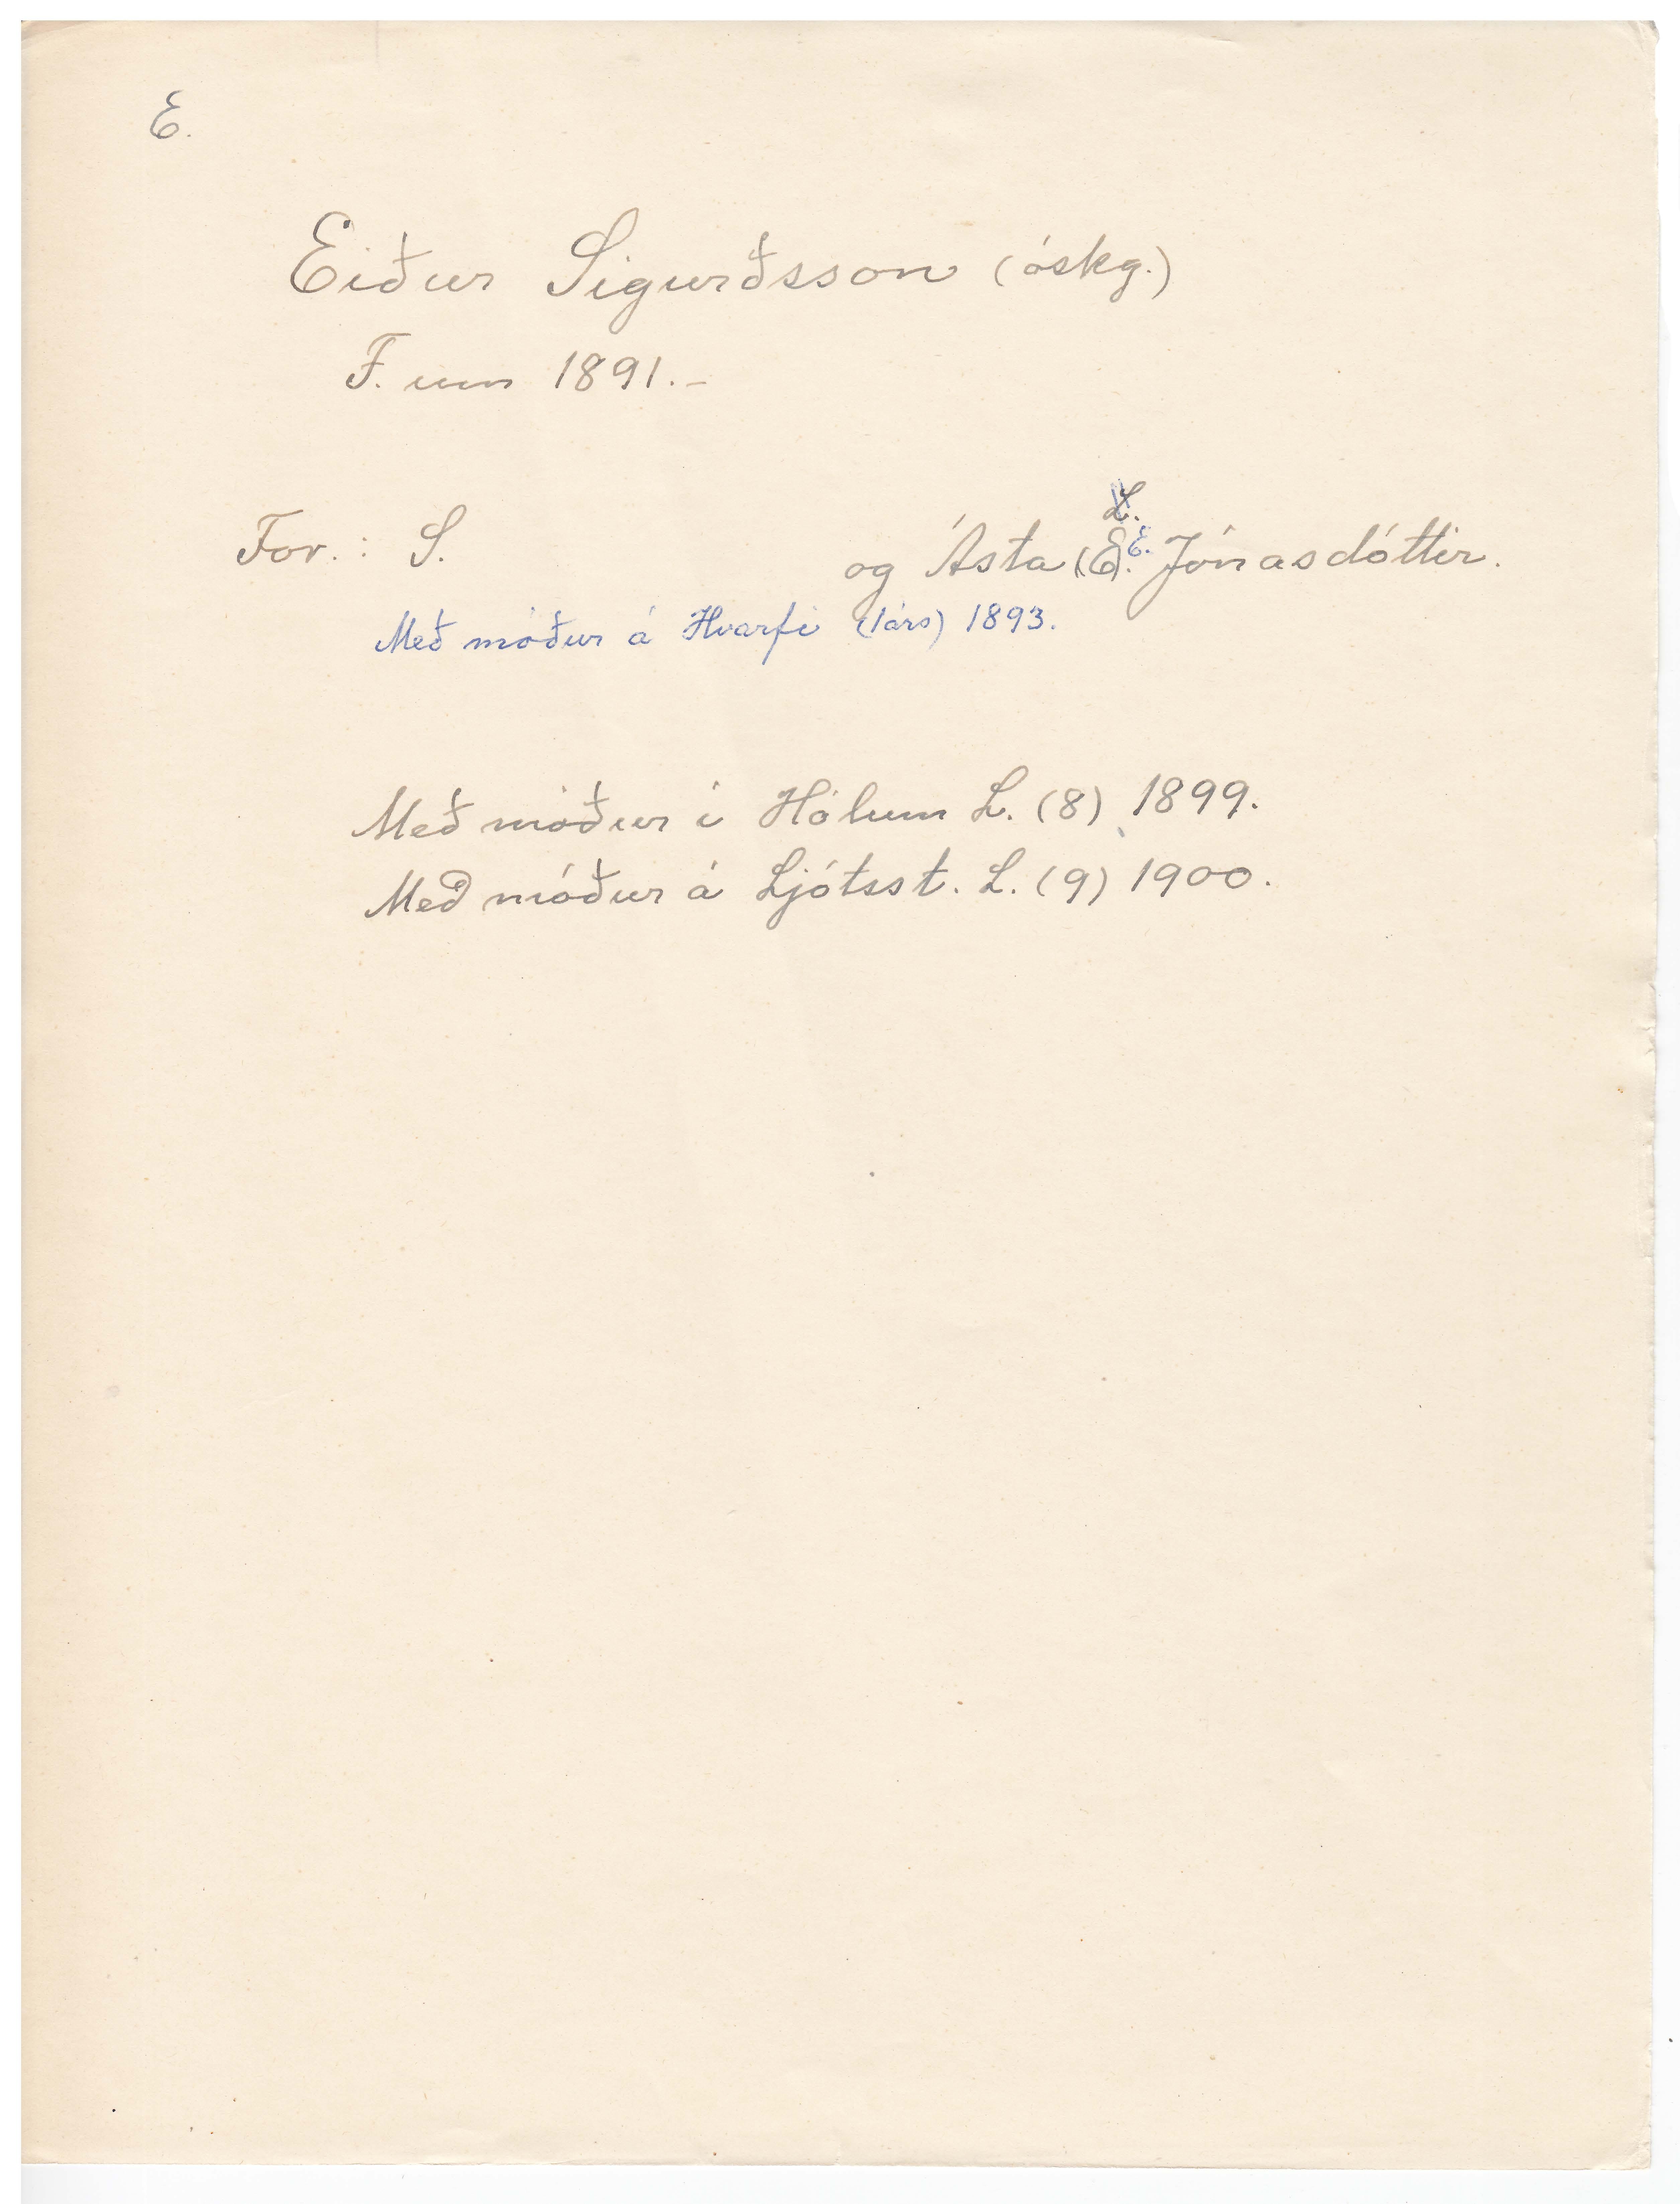 E.
Eiður Sigurðsson (óskg.)
F. um 1891.-
L.
For.: S. og Ásta (E. E. Jónasdóttir.
Með móður á Hvarfi (1árs) 1893.
Með móður í Hólum L. (8) 1899.
Með móður á Ljótsst. L. (9) 1900.